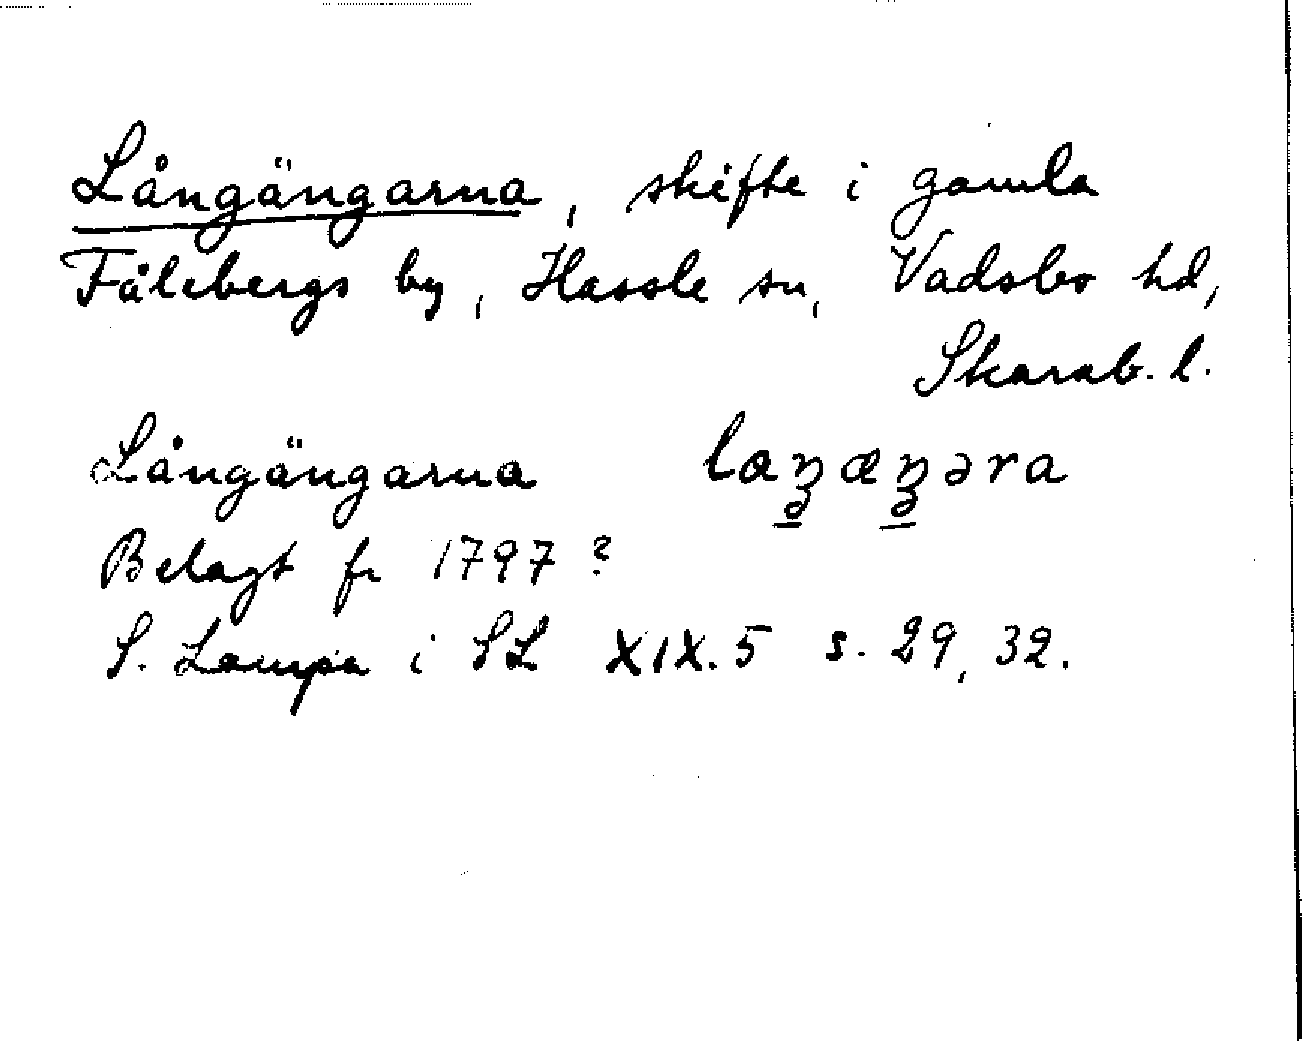 Långängarna, skifte i gamla
Fålebergs by, Hassle sn, Vadsbo hd,
Skarab. l.
Långängarna laŋæŋəra
Belagt fr 1797 ?
S. Lampa i SL XIX.5 s. 29, 32.